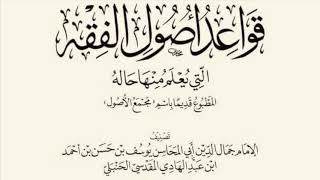 قَوَاعِدُ أُصُولِ الفِقْهِ
الَّتِي يُعْلَمُ مِنْهَا حَالُهُ
المَطْبُوعُ قَدِيمًا بِاسْمِ «مَجْمَعِ الأُصُولِ»
تَصْنِيفُ
الإِمَامِ جَمَالِ الدِّينِ أَبِي المَحَاسِنِ يُوسُفَ بْنِ حَسَنِ بْنِ أَحْمَدَ
ابْنِ عَبْدِ الهَادِي المَقْدِسِيِّ الحَنْبَلِيِّ